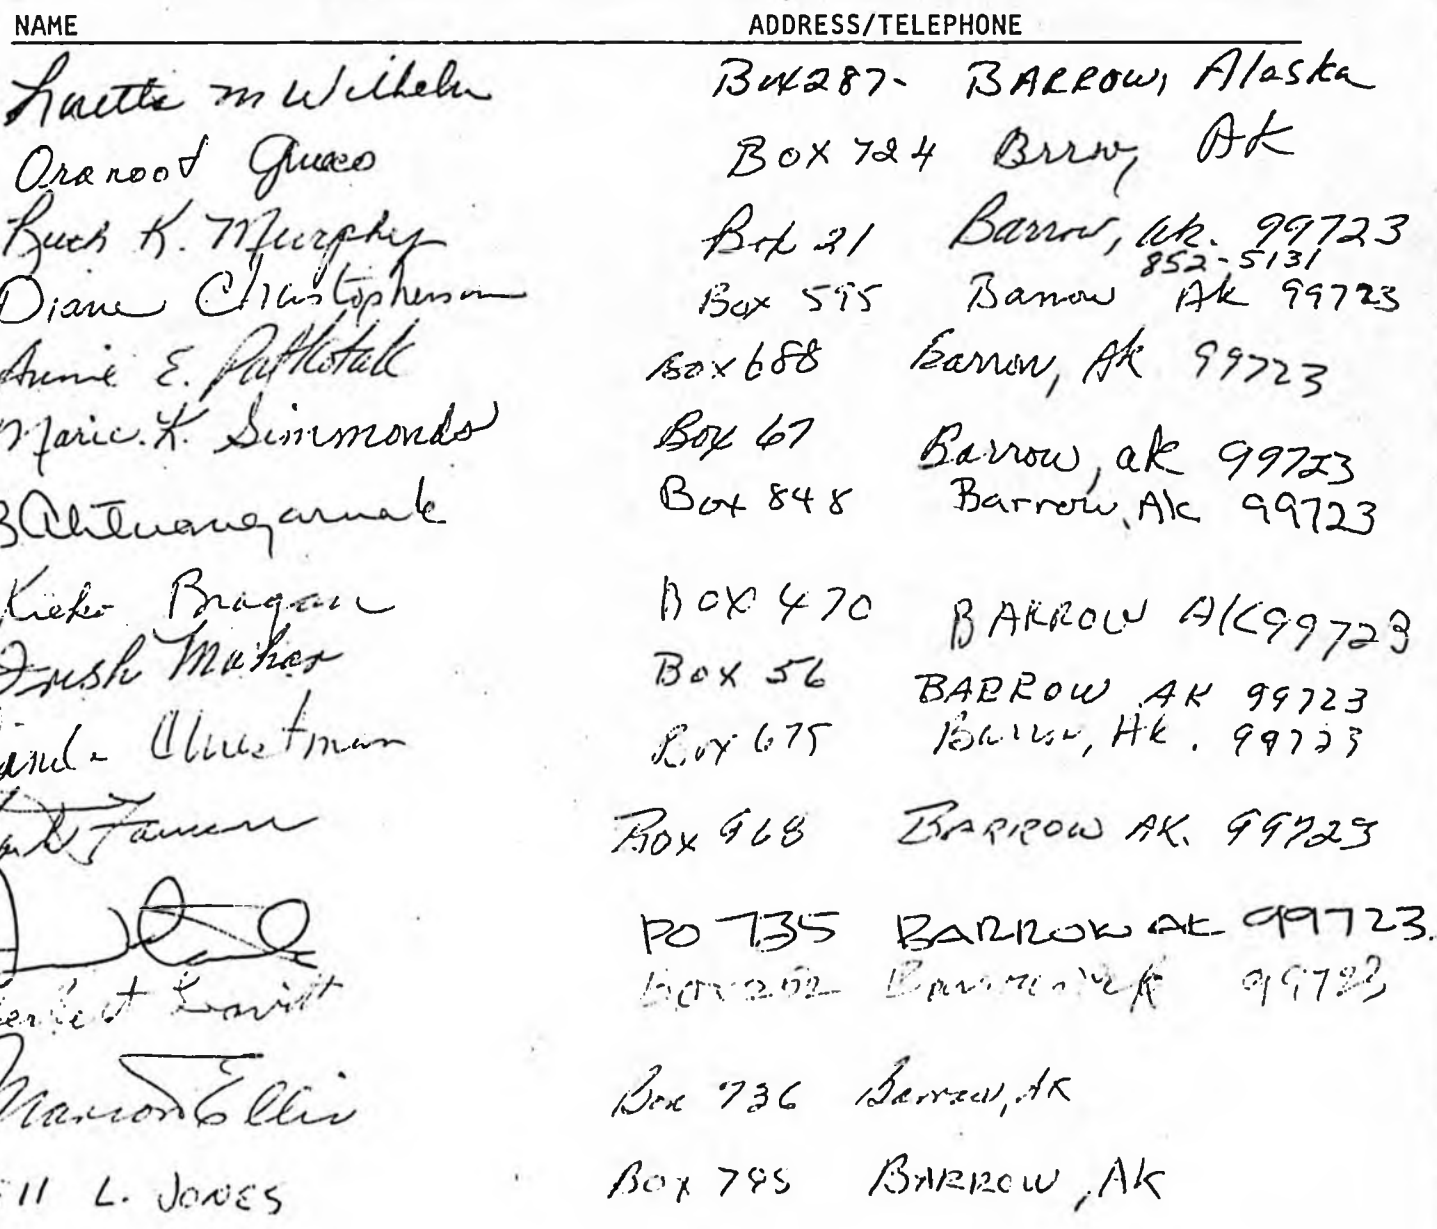 NAME ADDRESS/TELEPHONE
Loretta M Wilhelm Box 287- BARROW, Alaska
Oranoot Box 724 Brrw, AK
Ruth K. Murphy Box 21 Barrow, Ak. 99723
852-5131
Diane Christopherson Box 595 Barrow Ak 99723
Annie E. Patkotak Box 688 Barrow, Ak 99723
Marie. K. Simmonds Box 67 Barrow, ak 99723
Box 848 Barrow, Ak 99723
Kieko Bragan Box 470 BARROW AK 99723
Trish Mahar Box 56 BARROW AK 99723
Christman Box 675 Barrow, Ak. 99723
Box 968 BARROW AK. 99723
PO 735 BARROW AK 99723.
Leavitt Box Barrow Ak 99723
Marion Ellis Box 736 Barrow, AK
L. JONES Box 795 BARROW, AK